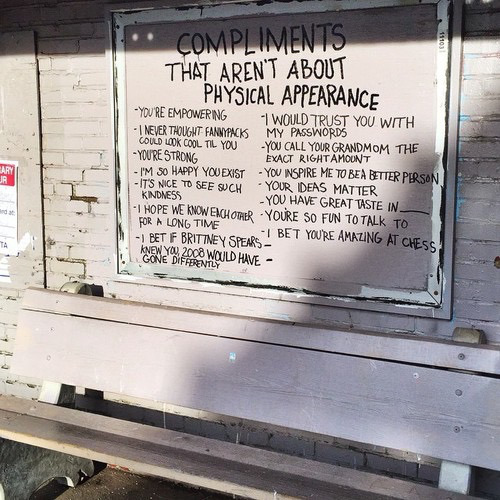 COMPLIMENTS
THAT AREN'T ABOUT
PHYSICAL APPEARANCE
-YOU'RE EMPOWERING
-I NEVER THOUGHT FANNYPACKS
COULD LOOK COOL TIL YOU
-YOU'RE STRONG
I'M SO HAPPY YOU EXIST
IT'S NICE TO SEE SUCH
KINDNESS
-I HOPE WE KNOW EACH OTHER
FOR A LONG TIME
-I BET IF BRITTNEY SPEARS
KNEW YOU, 2008 WOULD HAVE
GONE DIFFERENTLY
-I WOULD TRUST YOU WITH
MY PASSWORDS
-YOU CALL YOUR GRANDMOM THE
EXACT RIGHT AMOUNT
-YOU INSPIRE ME TO BE A BETTER PERSON
-YOUR IDEAS MATTER
-YOU HAVE GREAT TASTE IN____
-YOU'RE SO FUN TO TALK TO
- I BET YOU'RE AMAZING AT CHESS
-